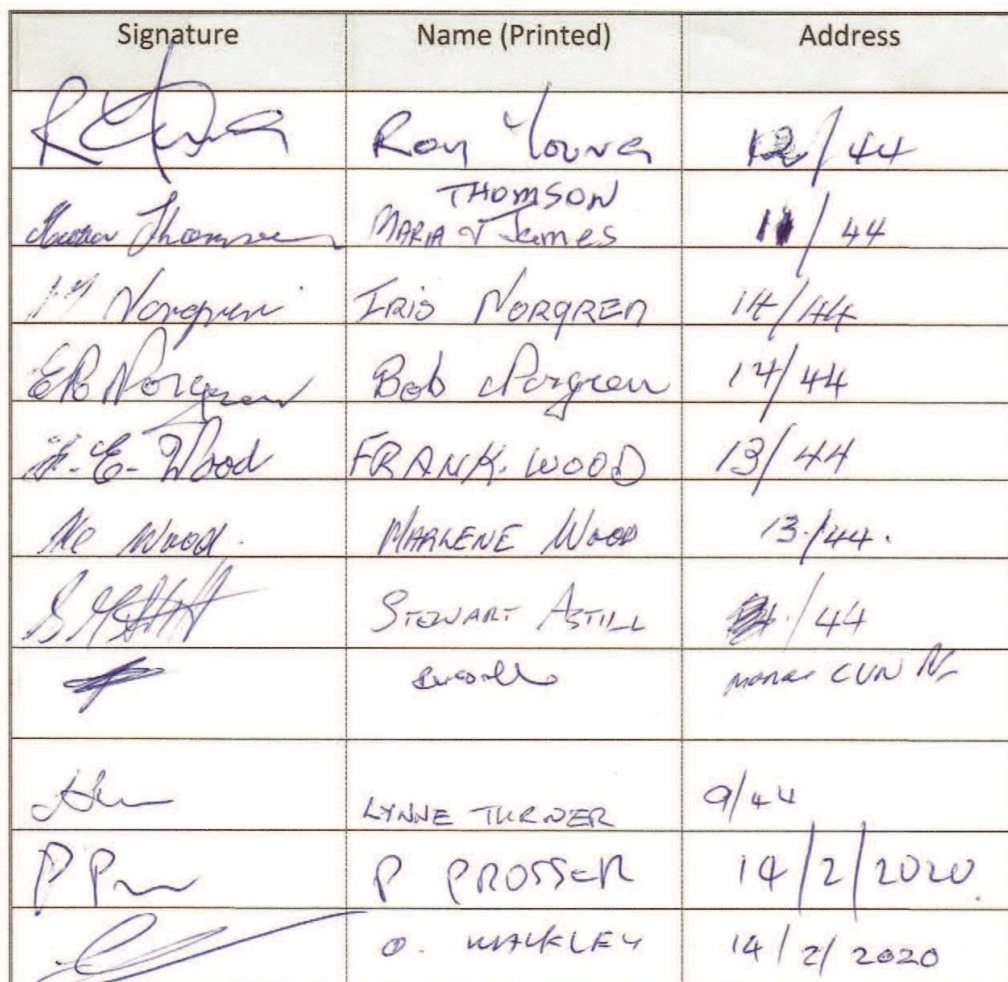 Signature Name (Printed) Address
Ron Young 12/44
THOMSON
Thomson MARIA & James 11/44
Norgren IRIS NORGREN 14/44
EB Norgren Bob Norgren 14/44
F. E. Wood FRANK. WOOD 13/44
Me Wood. MARLENE WOOD 13/44.
STEWART ASTILL /44
LYNNE TURNER 9/44
P P P PROSSER 14/2/2020
O. WALKLEY 14/2/2020